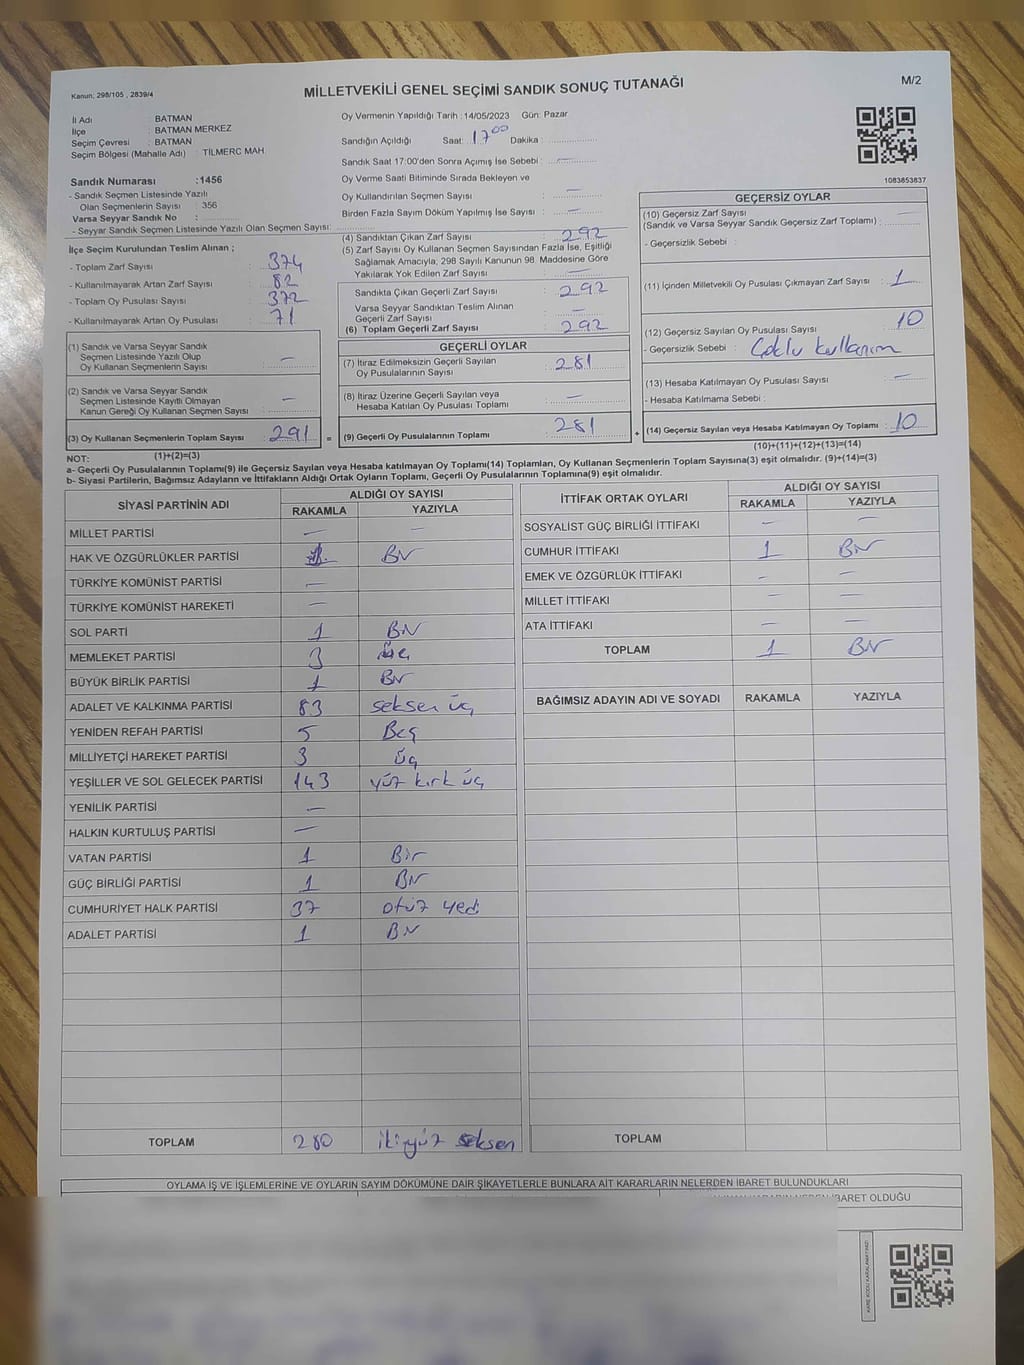 Kanun; 298/105 , 2839/4
MİLLETVEKİLİ GENEL SEÇİMİ SANDIK SONUÇ TUTANAĞI
M/2
İl Adı : BATMAN
İlçe : BATMAN MERKEZ
Seçim Çevresi : BATMAN
Seçim Bölgesi (Mahalle Adı) : TİLMERC MAH
Oy Vermenin Yapıldığı Tarih :14/05/2023 Gün: Pazar
Sandığın Açıldığı Saat: 17 00 Dakika :
Sandık Saat 17:00'den Sonra Açımış İse Sebebi : —
Oy Verme Saati Bitiminde Sırada Bekleyen ve
Oy Kullandırılan Seçmen Sayısı : —
Birden Fazla Sayım Döküm Yapılmış İse Sayısı : —
1083853837
Sandık Numarası :1456
- Sandık Seçmen Listesinde Yazılı
Olan Seçmenlerin Sayısı : 356
Varsa Seyyar Sandık No :
- Seyyar Sandık Seçmen Listesinde Yazılı Olan Seçmen Sayısı:
İlçe Seçim Kurulundan Teslim Alınan ;
- Toplam Zarf Sayısı : 374
- Kullanılmayarak Artan Zarf Sayısı : 82
- Toplam Oy Pusulası Sayısı : 372
- Kullanılmayarak Artan Oy Pusulası : 71
(1) Sandık ve Varsa Seyyar Sandık
Seçmen Listesinde Yazılı Olup
Oy Kullanan Seçmenlerin Sayısı : —
(2) Sandık ve Varsa Seyyar Sandık
Seçmen Listesinde Kayıtlı Olmayan
Kanun Gereği Oy Kullanan Seçmen Sayısı : —
(3) Oy Kullanan Seçmenlerin Toplam Sayısı : 291
(1)+(2)=(3)
(4) Sandıktan Çıkan Zarf Sayısı : 292
(5) Zarf Sayısı Oy Kullanan Seçmen Sayısından Fazla İse, Eşitliği
Sağlamak Amacıyla; 298 Sayılı Kanunun 98. Maddesine Göre
Yakılarak Yok Edilen Zarf Sayısı : —
Sandıkta Çıkan Geçerli Zarf Sayısı : 292
Varsa Seyyar Sandıktan Teslim Alınan
Geçerli Zarf Sayısı : —
(6) Toplam Geçerli Zarf Sayısı : 292
GEÇERLİ OYLAR
(7) İtiraz Edilmeksizin Geçerli Sayılan
Oy Pusulalarının Sayısı : 281
(8) İtiraz Üzerine Geçerli Sayılan veya
Hesaba Katılan Oy Pusulası Toplamı : —
= (9) Geçerli Oy Pusulalarının Toplamı : 281
GEÇERSİZ OYLAR
(10) Geçersiz Zarf Sayısı
(Sandık ve Varsa Seyyar Sandık Geçersiz Zarf Toplamı) : —
- Geçersizlik Sebebi :
(11) İçinden Milletvekili Oy Pusulası Çıkmayan Zarf Sayısı : 1
(12) Geçersiz Sayılan Oy Pusulası Sayısı : 10
- Geçersizlik Sebebi : Çoklu kullanım
(13) Hesaba Katılmayan Oy Pusulası Sayısı : —
- Hesaba Katılmama Sebebi :
+ (14) Geçersiz Sayılan veya Hesaba Katılmayan Oy Toplamı : 10
(10)+(11)+(12)+(13)=(14)
NOT:
a- Geçerli Oy Pusulalarının Toplamı(9) ile Geçersiz Sayılan veya Hesaba katılmayan Oy Toplamı(14) Toplamları, Oy Kullanan Seçmenlerin Toplam Sayısına(3) eşit olmalıdır. (9)+(14)=(3)
b- Siyasi Partilerin, Bağımsız Adayların ve İttifakların Aldığı Ortak Oyların Toplamı, Geçerli Oy Pusulalarının Toplamına(9) eşit olmalıdır.
SİYASİ PARTİNİN ADI ALDIĞI OY SAYISI
RAKAMLA YAZIYLA
MİLLET PARTİSİ — —
HAK VE ÖZGÜRLÜKLER PARTİSİ 1 Bir
TÜRKİYE KOMÜNİST PARTİSİ —
TÜRKİYE KOMÜNİST HAREKETİ —
SOL PARTİ 1 Bir
MEMLEKET PARTİSİ 3 üç
BÜYÜK BİRLİK PARTİSİ 1 Bir
ADALET VE KALKINMA PARTİSİ 83 seksen üç
YENİDEN REFAH PARTİSİ 5 Beş
MİLLİYETÇİ HAREKET PARTİSİ 3 üç
YEŞİLLER VE SOL GELECEK PARTİSİ 143 yüz kırk üç
YENİLİK PARTİSİ —
HALKIN KURTULUŞ PARTİSİ —
VATAN PARTİSİ 1 Bir
GÜÇ BİRLİĞİ PARTİSİ 1 Bir
CUMHURİYET HALK PARTİSİ 37 otuz yedi
ADALET PARTİSİ 1 Bir
TOPLAM 280 ikiyüz seksen
İTTİFAK ORTAK OYLARI ALDIĞI OY SAYISI
RAKAMLA YAZIYLA
SOSYALİST GÜÇ BİRLİĞİ İTTİFAKI — —
CUMHUR İTTİFAKI 1 Bir
EMEK VE ÖZGÜRLÜK İTTİFAKI — —
MİLLET İTTİFAKI — —
ATA İTTİFAKI — —
TOPLAM 1 Bir
BAĞIMSIZ ADAYIN ADI VE SOYADI RAKAMLA YAZIYLA
TOPLAM
OYLAMA İŞ VE İŞLEMLERİNE VE OYLARIN SAYIM DÖKÜMÜNE DAİR ŞİKAYETLERLE BUNLARA AİT KARARLARIN NELERDEN İBARET BULUNDUKLARI
NEDEN İBARET OLDUĞU
KARE KODU KARALAMAYINIZ!